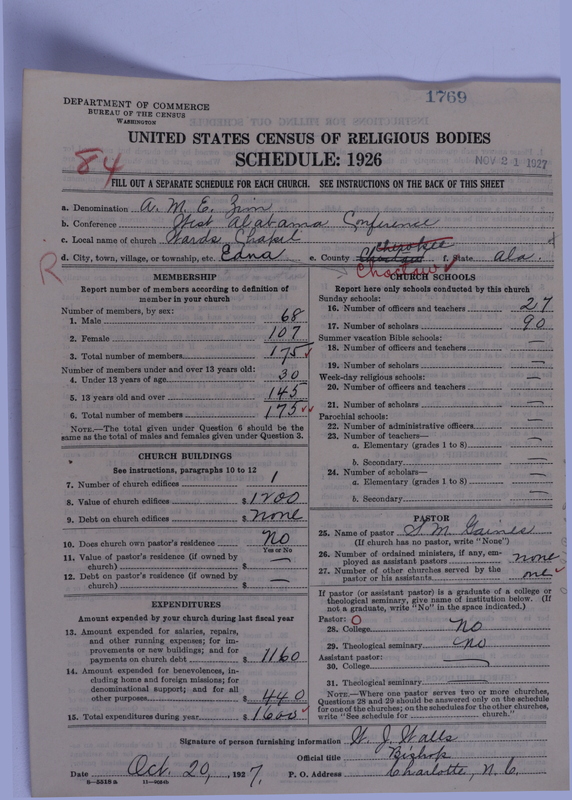 1769
DEPARTMENT OF COMMERCE
BUREAU OF THE CENSUS
WASHINGTON
UNITED STATES CENSUS OF RELIGIOUS BODIES
SCHEDULE: 1926
84
NOV 21 1927
FILL OUT A SEPARATE SCHEDULE FOR EACH CHURCH. SEE INSTRUCTIONS ON THE BACK OF THIS SHEET
a. Denomination A. M. E. Zion
b. Conference West Alabama Conference
c. Local name of church Wards Chapel
d. City, town, village, or township, etc. Edna e. County Cherokee Choctaw f. State Ala.
R
Choctaw
MEMBERSHIP
Report number of members according to definition of member in your church
Number of members, by sex:
1. Male 68
2. Female 107
3. Total number of members 175
Number of members under and over 13 years old:
4. Under 13 years of age 30
5. 13 years old and over 145
6. Total number of members 175
NOTE.—The total given under Question 6 should be the same as the total of males and females given under Question 3.
CHURCH BUILDINGS
See instructions, paragraphs 10 to 12
7. Number of church edifices 1
8. Value of church edifices $ 1200
9. Debt on church edifices $ none
10. Does church own pastor's residence No
Yes or No
11. Value of pastor's residence (if owned by church) $ —
12. Debt on pastor's residence (if owned by church) $ —
EXPENDITURES
Amount expended by your church during last fiscal year
13. Amount expended for salaries, repairs, and other running expenses; for improvements or new buildings; and for payments on church debt $ 1160
14. Amount expended for benevolences, including home and foreign missions; for denominational support; and for all other purposes $ 440
15. Total expenditures during year $ 1600
CHURCH SCHOOLS
Report here only schools conducted by this church
Sunday schools:
16. Number of officers and teachers 27
17. Number of scholars 90
Summer vacation Bible schools:
18. Number of officers and teachers —
19. Number of scholars —
Week-day religious schools:
20. Number of officers and teachers —
21. Number of scholars —
Parochial schools:
22. Number of administrative officers —
23. Number of teachers—
a. Elementary (grades 1 to 8) —
b. Secondary —
24. Number of scholars—
a. Elementary (grades 1 to 8) —
b. Secondary —
PASTOR
25. Name of pastor S. M. Gaines
(If church has no pastor, write "None")
26. Number of ordained ministers, if any, employed as assistant pastors none
27. Number of other churches served by the pastor or his assistants one
If pastor (or assistant pastor) is a graduate of a college or theological seminary, give name of institution below. (If not a graduate, write "No" in the space indicated.)
Pastor: O
28. College No
29. Theological seminary No
Assistant pastor:
30. College —
31. Theological seminary —
NOTE.—Where one pastor serves two or more churches, Questions 28 and 29 should be answered only on the schedule for one of the churches; on the schedules for the other churches, write "See schedule for ........ church."
Signature of person furnishing information W. J. Walls
Official title Bishop
Date Oct. 20, 1927. P. O. Address Charlotte, N. C.